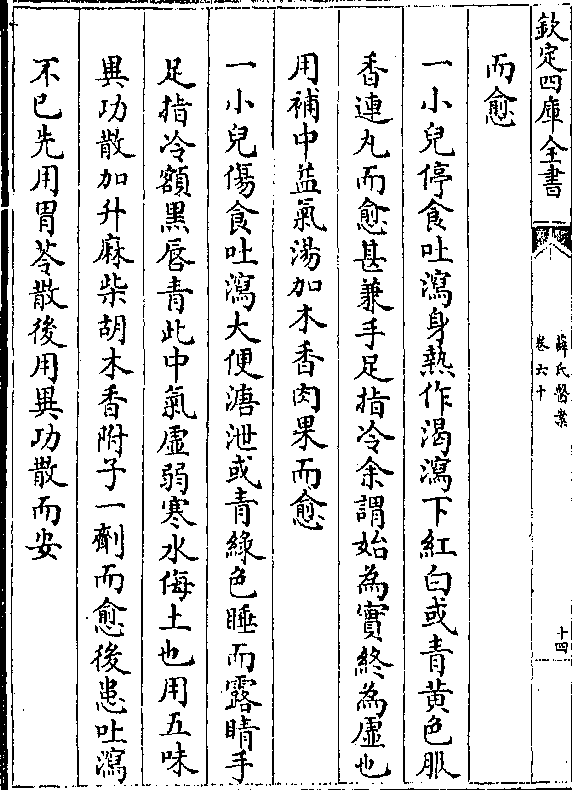 欽定四庫全書
薛氏醫案
卷六十
十四
而愈
一小兒停食吐瀉身熱作渴瀉下紅白或青黃色服
香連丸而愈甚兼手足指冷余謂始為實終為虛也
用補中益氣湯加木香肉果而愈
一小兒傷食吐瀉大便溏泄或青綠色睡而露睛手
足指冷額黑唇青此中氣虛弱寒水侮土也用五味
異功散加升麻柴胡木香附子一劑而愈後患吐瀉
不已先用胃苓散後用異功散而安